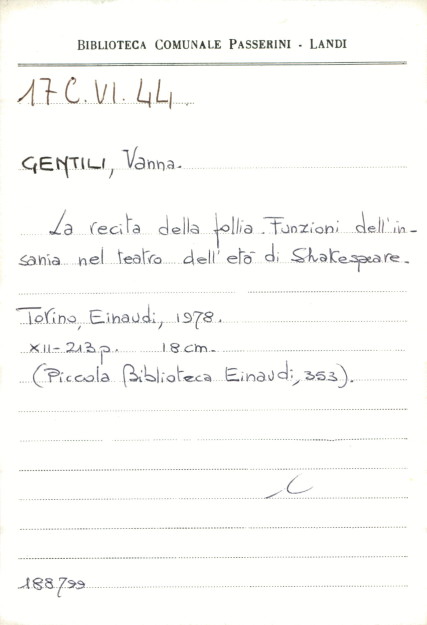 BIBLIOTECA COMUNALE PASSERINI - LANDI
17 C. VI. 44.
GENTILI, Vanna.
La recita della follia. Funzioni dell'in-
sania nel teatro dell'età di Shakespeare.
Torino, Einaudi, 1978.
XII-213 p. 18 cm.
(Piccola Biblioteca Einaudi, 353).
188799